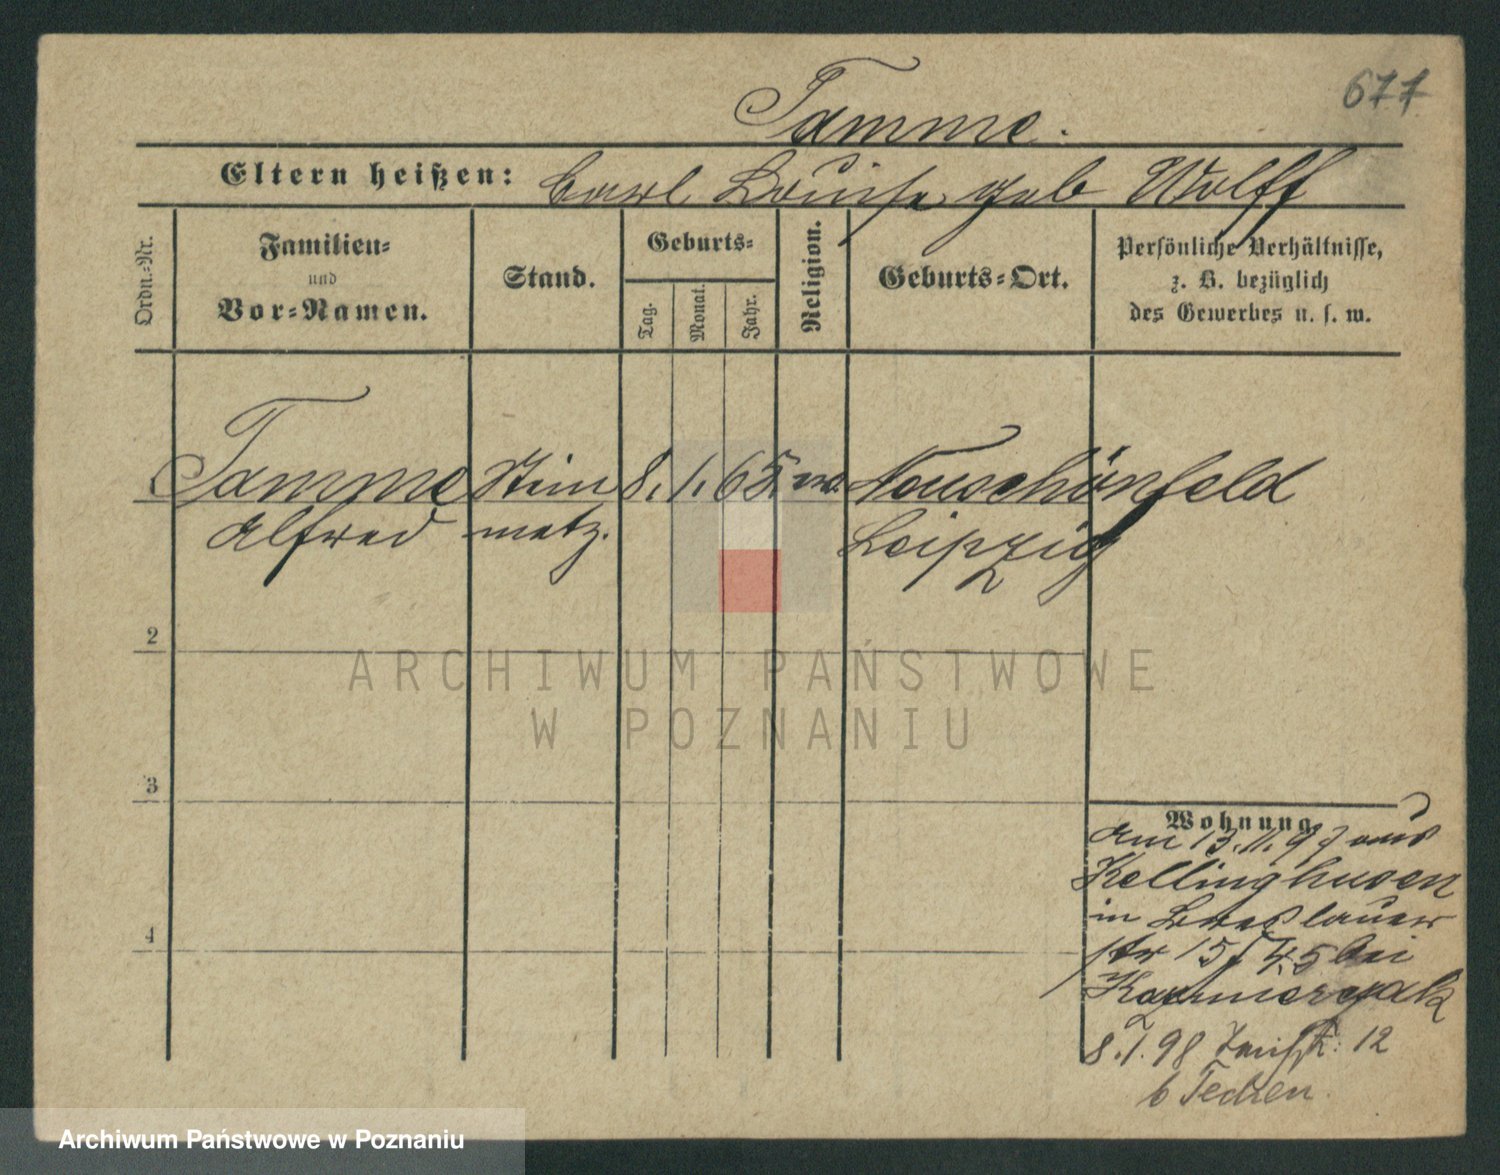 677
Tamme.
Eltern heißen: Carl Louise geb Wolff
Ordn.-Nr.
Familien-
und
Vor-Namen.
Stand.
Geburts-
Tag.
Monat.
Jahr.
Religion.
Geburts-Ort.
Persönliche Verhältnisse,
z. B. bezüglich
des Gewerbes u. s. w.
Tamme Stein 8. 1. 65. Neuschönfeld
Alfred metz. Leipzig
2
3
4
Wohnung
am 13.11.97 aus
Kellinghusen
in Breslauer
str 15 bei
Kazmierczak
8.1.98 12
b Techen
ARCHIWUM PAŃSTWOWE
W POZNANIU
Archiwum Państwowe w Poznaniu